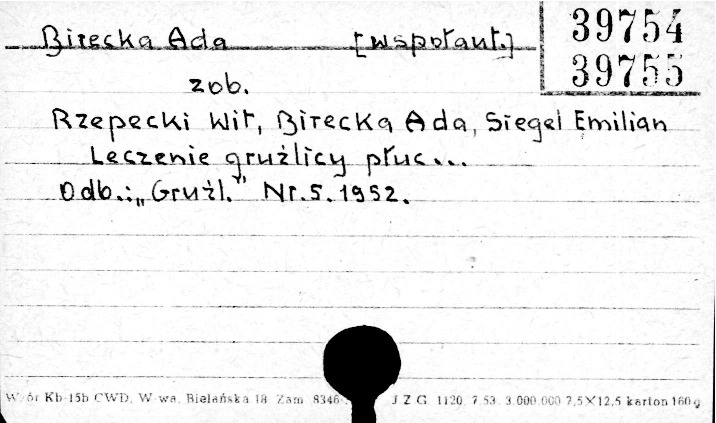 Birecka Ada [współaut.]
39754
39755
zob.
Rzepecki Wit, Birecka Ada, Siegel Emilian
Leczenie gruźlicy płuc...
Odb.: „Gruźl." Nr. 5. 1952.
Wzór Kb-15b CWD, W-wa, Bielańska 18 Zam. 8346 J Z G. 1120. 7.53. 3.000.000 7,5×12,5 karton 160 g